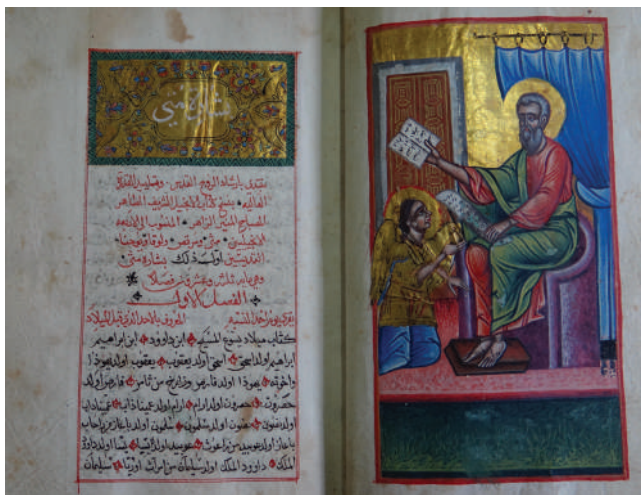 نبتدي بارشاد الروح القدس وتعليم القدرة
العالية بنسخ كتاب الانجيل الشريف الطاهر
المصباح المنير الزاهر المنسوب الي الاربعه
الانجيليين متي ومرقص ولوقا ويوحنا
القديسين اول ذلك بشارة متي
وهي مايه ثلثه وعشرون فصلا
الفصل الاول
يقري يوم احد النسبه المعروف بالاحد الذي قبل الميلاد
كتاب ميلاد يسوع المسيح ابن داوود ابن ابراهيم
ابراهيم اولد اسحق اسحق اولد يعقوب يعقوب اولد يهوذا
واخوته يهوذا اولد فارص وزارح من ثامر فارص اولد
حصرون حصرون اولد ارام ارام اولد عميناداب عميناداب
اولد سلمون سلمون اولد باعاز من راحاب
باعاز اولد عوبيد من راعوث عوبيد اولد يسا يسا اولد داوود
الملك داوود الملك اولد سليمان من امراة اوريا سليمان